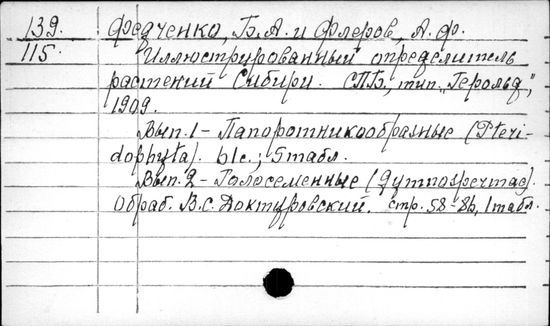 139. Федченко, Б.А. и Флеров, А.Ф.
115. Иллюстрированный определитель
растений Сибири. СПБ, тип. „Герольд",
1909.
Вып. 1 - Папоротникообразные (Pteri-
dophyta). 61с.; 5 табл.
Вып. 2 - Голосеменные (Gymnospermae).
Обраб. В.С. Доктуровский. стр. 58-86, 1 табл.